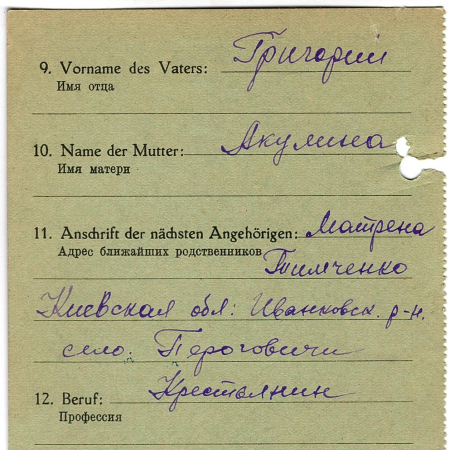 9. Vorname des Vaters: Григорий
Имя отца
10. Name der Mutter: Акулина
Имя матери
11. Anschrift der nächsten Angehörigen: Матрена
Адрес ближайших родственников Тимченко
Киевская обл: Иванковск. р-н.
село: Пероговичи
12. Beruf: Крестьянин
Профессия